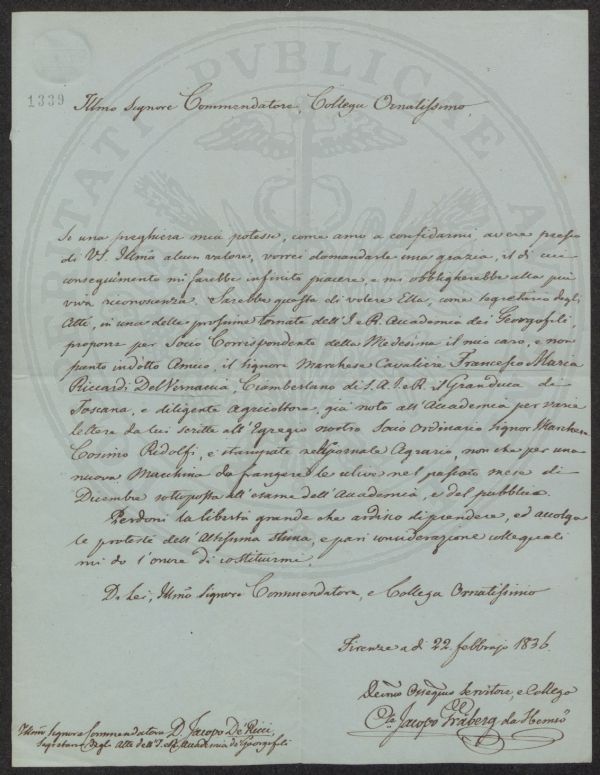 1339
Illmo Signore Commendatore, Collega Ornatissimo,
Se una preghiera mia potesse, come amo a confidarmi, avere presso
di VS. Illma alcun valore, vorrei domandarle una grazia, il di cui
conseguimento mi farebbe infinito piacere, e mi obbligherebbe alla più
viva riconoscenza. Sarebbe questa di volere Ella, come Segretario degli
Atti, in una delle prossime tornate dell'I. e R. Accademia dei Georgofili,
proporre per Socio Corrispondente della Medesima il mio caro, e non
punto indotto Amico, il Signore Marchese Cavaliere Francesco Maria
Riccardi Del Vernaccia, Ciamberlano di S.A.I. e R. il Granduca di
Toscana, e diligente Agricoltore, già noto all'Accademia per varie
lettere da lui scritte all'Egregio nostro Socio Ordinario Signor Marchese
Cosimo Ridolfi, e stampate nel Giornale Agrario, non che per una
nuova Macchina da frangere le ulive nel passato mese di
Dicembre sottoposta all'esame dell'Accademia, e del pubblico.
Perdoni la libertà grande che ardisco di prendere, ed accolga
le proteste dell'Altissima stima, e pari considerazione colle quali
mi do l'onore di costituirmi,
Di Lei, Illmo Signore Commendatore, e Collega Ornatissimo
Firenze a dì 22 febbrajo 1836.
Servitore, e Collega
Cte Jacopo Gråberg da Hemsö
Illmo Signore Commendatore D. Jacopo De' Ricci,
Segretario degli Atti dell'I. e R. Accademia de' Georgofili
PVBLICAE